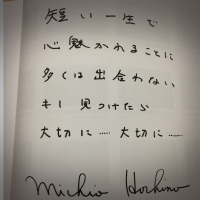 短い一生で
心魅かれることに
多くは出合わない
もし見つけたら
大切に……大切に……
Michio Hoshino